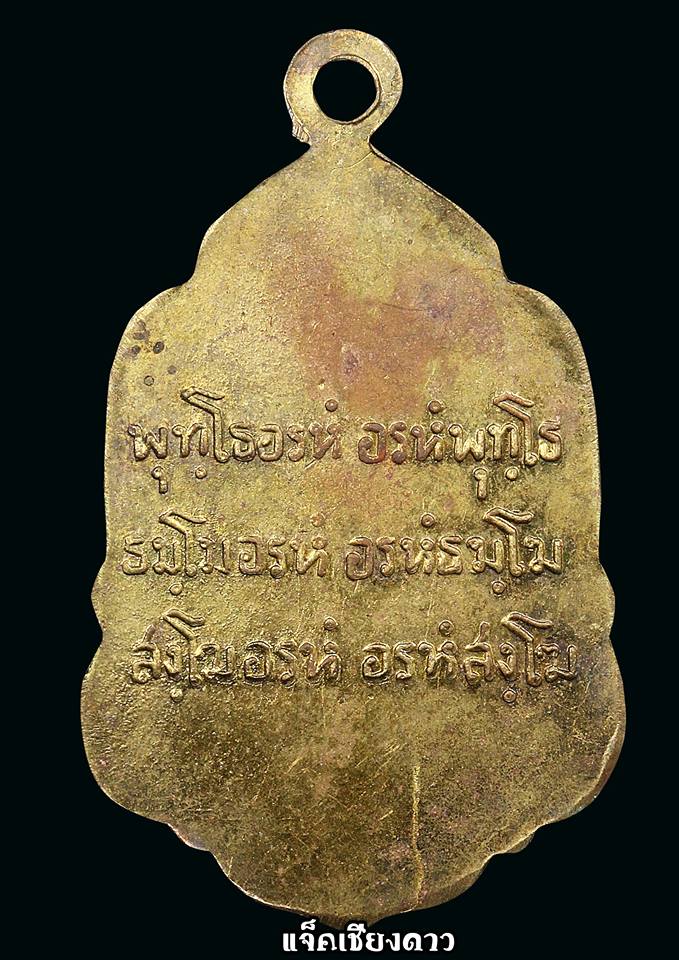 พุทฺโธอรหํ อรหํพุทฺโธ
ธมฺโมอรหํ อรหํธมฺโม
สงฺโฆอรหํ อรหํสงฺโฆ
แจ็คเชียงดาว